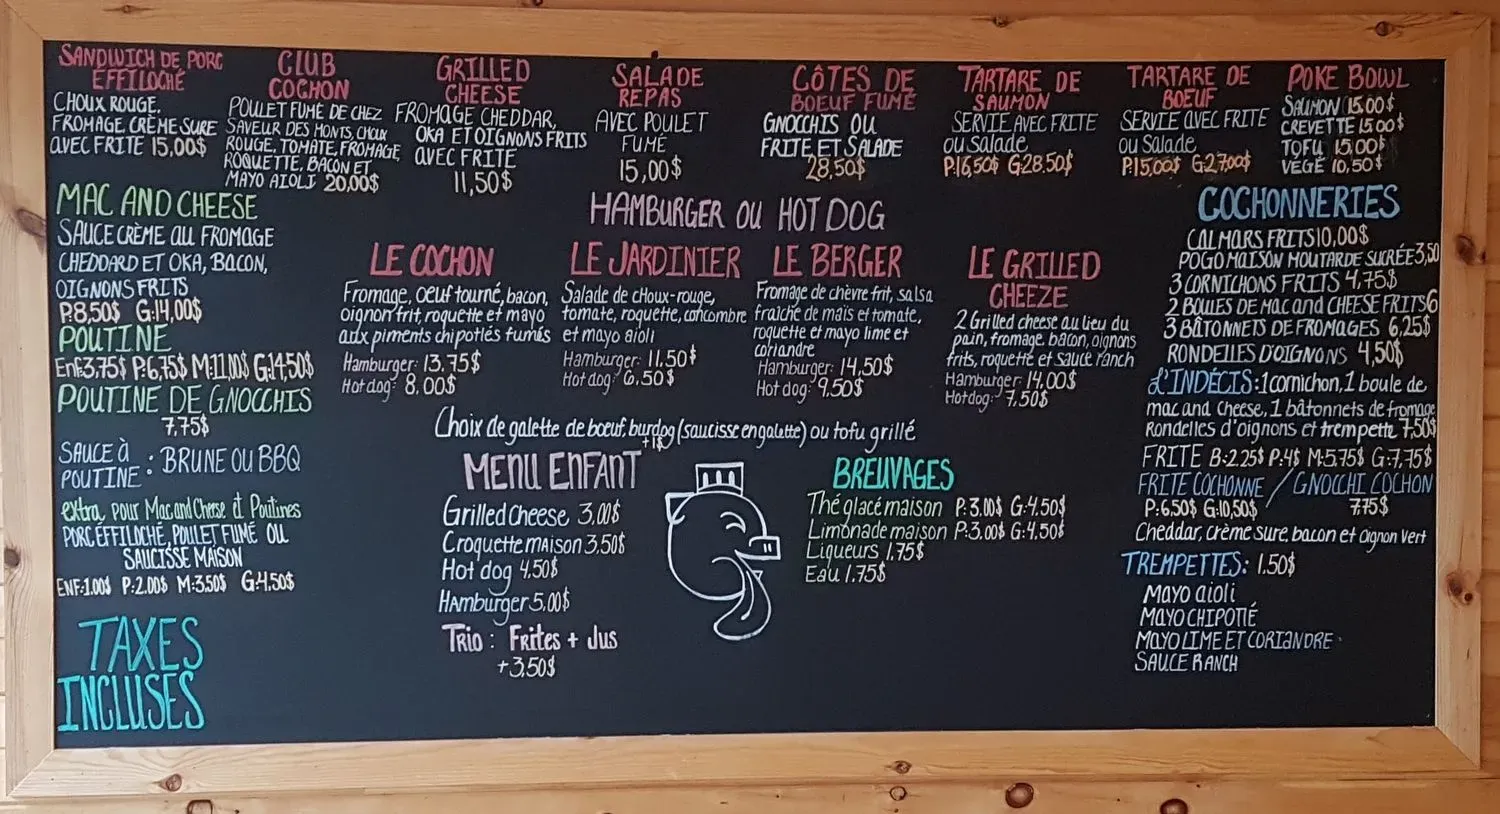 SANDWICH DE PORC
EFFILOCHÉ
CHOUX ROUGE,
FROMAGE CRÈME SURE
AVEC FRITE 15,00$
CLUB
COCHON
POULET FUMÉ DE CHEZ
SAVEUR DES MONTS, CHOUX
ROUGE, TOMATE, FROMAGE,
ROQUETTE, BACON ET
MAYO AIOLI 20,00$
GRILLED
CHEESE
FROMAGE CHEDDAR,
OKA ET OIGNONS FRITS
AVEC FRITE
11,50$
SALADE
REPAS
AVEC POULET
FUMÉ
15,00$
CÔTES DE
BOEUF FUMÉ
GNOCCHIS OU
FRITE ET SALADE
28,50$
TARTARE DE
SAUMON
SERVIE AVEC FRITE
OU SALADE
P:16,50$ G:28.50$
TARTARE DE
BOEUF
SERVIE AVEC FRITE
OU SALADE
P:15,00$ G:27,00$
POKE BOWL
SAUMON 15,00$
CREVETTE 15.00$
TOFU 15,00$
VÉGÉ 10,50$
MAC AND CHEESE
SAUCE CRÈME AU FROMAGE
CHEDDARD ET OKA, BACON,
OIGNONS FRITS
P:8,50$ G:14,00$
POUTINE
Enf:3,75$ P:6,75$ M:11,00$ G:14,50$
POUTINE DE GNOCCHIS
7,75$
SAUCE À
POUTINE : BRUNE OU BBQ
extra pour Mac and Cheese et Poutines
PORC ÉFFILOCHÉ, POULET FUMÉ OU
SAUCISSE MAISON
ENF:1.00$ P:2.00$ M:3,50$ G:4,50$
TAXES
INCLUSES
HAMBURGER OU HOT DOG
LE COCHON
Fromage, oeuf tourné, bacon,
oignon frit, roquette et mayo
aux piments chipotlés fumés
Hamburger: 13.75$
Hot dog: 8.00$
LE JARDINIER
Salade de choux-rouge,
tomate, roquette, concombre
et mayo aioli
Hamburger: 11.50$
Hot dog: 6.50$
LE BERGER
Fromage de chèvre frit, salsa
fraîche de maïs et tomate,
roquette et mayo lime et
coriandre
Hamburger: 14,50$
Hot dog: 9,50$
LE GRILLED
CHEEZE
2 Grilled cheese au lieu du
pain, fromage, bacon, oignons
frits, roquette et sauce ranch
Hamburger: 14,00$
Hotdog: 7,50$
Choix de galette de boeuf, burdog (saucisse en galette) ou tofu grillé
+1$
MENU ENFANT
Grilled Cheese 3,00$
Croquette maison 3.50$
Hot dog 4.50$
Hamburger 5.00$
Trio : Frites + Jus
+3,50$
BREUVAGES
Thé glacé maison P:3.00$ G:4.50$
Limonade maison P:3.00$ G:4,50$
Liqueurs 1.75$
Eau 1.75$
COCHONNERIES
CALMARS FRITS 10,00$
POGO MAISON MOUTARDE SUCRÉE 3,50
3 CORNICHONS FRITS 4,75$
2 BOULES DE MAC and CHEESE FRITS 6
3 BÂTONNETS DE FROMAGES 6,25$
RONDELLES D'OIGNONS 4,50$
L'INDÉCIS: 1 cornichon, 1 boule de
mac and cheese, 1 bâtonnets de fromage
Rondelles d'oignons et trempette 7,50$
FRITE B:2.25$ P:4$ M:5.75$ G:7,75$
FRITE COCHONNE / GNOCCHI COCHON
P:6.50$ G:10,50$ 7.75$
Cheddar, crème sure, bacon et oignon vert
TREMPETTES: 1.50$
MAYO aioli
MAYO CHIPOTLÉ
MAYO LIME ET CORIANDRE
SAUCE RANCH